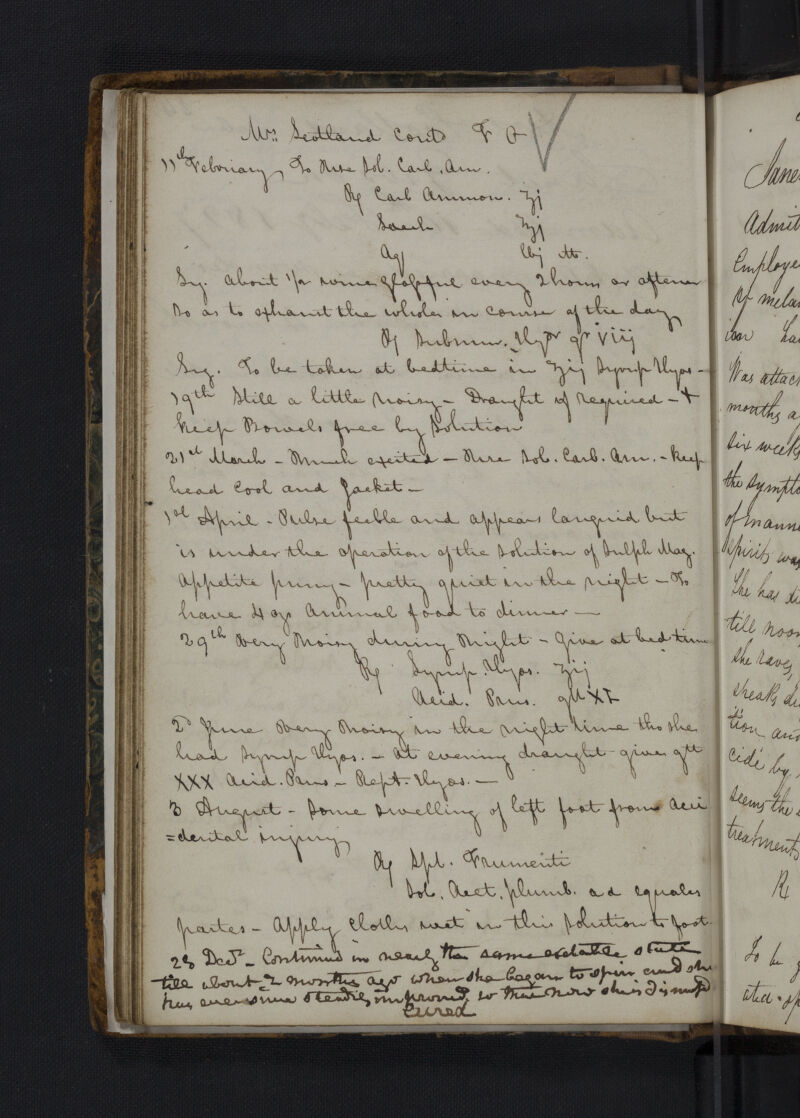 Mrs Scotland Cont'd
11th February, To Use Sol. Carb. Am.
Rx Carb Ammon. ʒj
Sacch ℥j
Aq lbj M.
Sig. About 1/2 wine glassful every 2 hours or oftener
so as to exhaust the whole in course of the day
Rx Submur. Hydr gr viij
Sig. To be taken at bedtime in ʒij Syrup Hyos -
19th Still a little noisy - Draught if required - &
keep Bowels free by Solution
21st March - Much excited - Use Sol. Carb. Am. - keep
head cool and Jacket -
1st April - Pulse feeble and appears languid but
is under the operation of the Solution of Sulph Mag.
Appetite puny - pretty quiet in the night - To
have 4 oz animal food to dinner -
29th Very noisy during night - Give at bed time
Rx Syrup. Hyos. ʒij
Acid. Prus. gtt XX
2d June Very noisy in the night time tho she
had Syrup Hyos. - At evening draught give gtt
XXX Acid. Prus - Rept. Hyos. -
3 August - Some swelling of left foot from acci
=dental injury
Rx Spt. Frumenti
Sol. Acet. plumb. a d equales
partes - Apply cloths wet in this solution to foot
28 Decr - Continued in nearly the same excitable state
till about 2 months ago when she began to spin and she
has ever since steadily improved, so that now she is dismissed
Cured
Jane
Admit
Employe
of mela
Was attac
months a
six week
the sympto
of mann
spirits was
She has
till noon
she raves,
speaks
tion and
cide by
seems the
treatment
Rx
To be